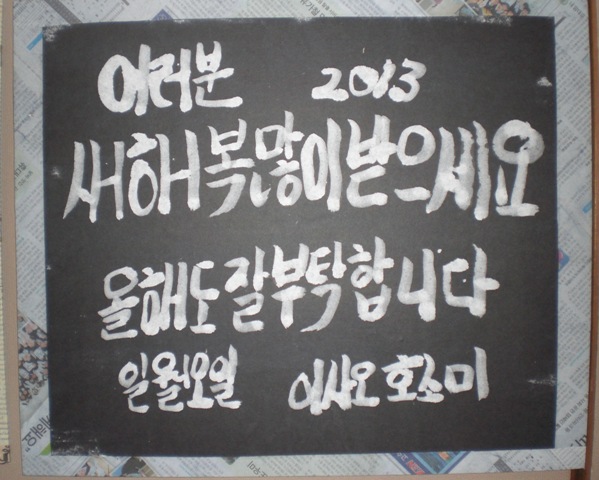 여러분 2013
새해 복많이받으세요
올해도 잘부탁합니다
일월오일 이사오 호소미